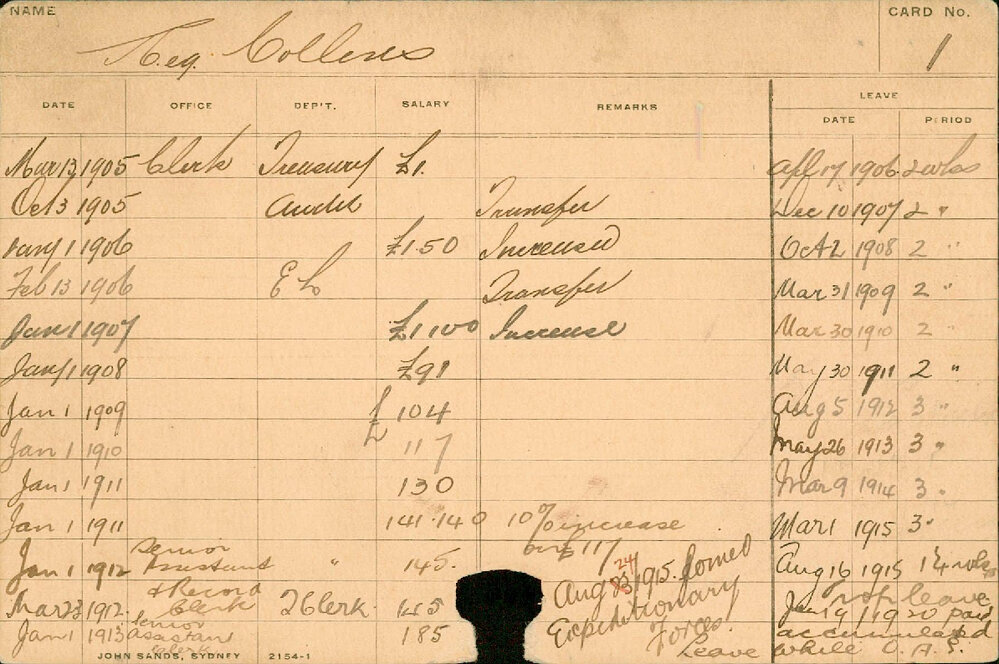 NAME
CARD No.
Reg. Collens
1
DATE OFFICE DEP'T. SALARY REMARKS LEAVE
DATE PERIOD
Mar 13 1905 Clerk Treasury £1. Apl 17 1906 2 wks
Oct 3 1905 Audit Transfer Dec 10 1907 2 "
Jany 1 1906 £1.50 Increased Oct 2 1908 2 "
Feb 13 1906 Transfer Mar 31 1909 2 "
Jany 1 1907 Increase Mar 30 1910 2 "
Jany 1 1908 £91 May 30 1911 2 "
Jan 1 1909 £ 104 Aug 5 1912 3 "
Jan 1 1910 117 May 26 1913 3 "
Jan 1 1911 130 Mar 9 1914 3 "
Jan 1 1911 141.14 0 10% increase Mar 1 1915 3 "
117
Jan 1 1912 Senior Assistant " 145. Aug 16 1915
Mar 23 1912. & Record Clerk Clerk.
Jan 1 1913 Senior Assistant Clerk 185
Aug 24 1915. Joined
Expeditionary
Forces
Leave
leave
1920 paid
accumulated
while
JOHN SANDS, SYDNEY 2154-1